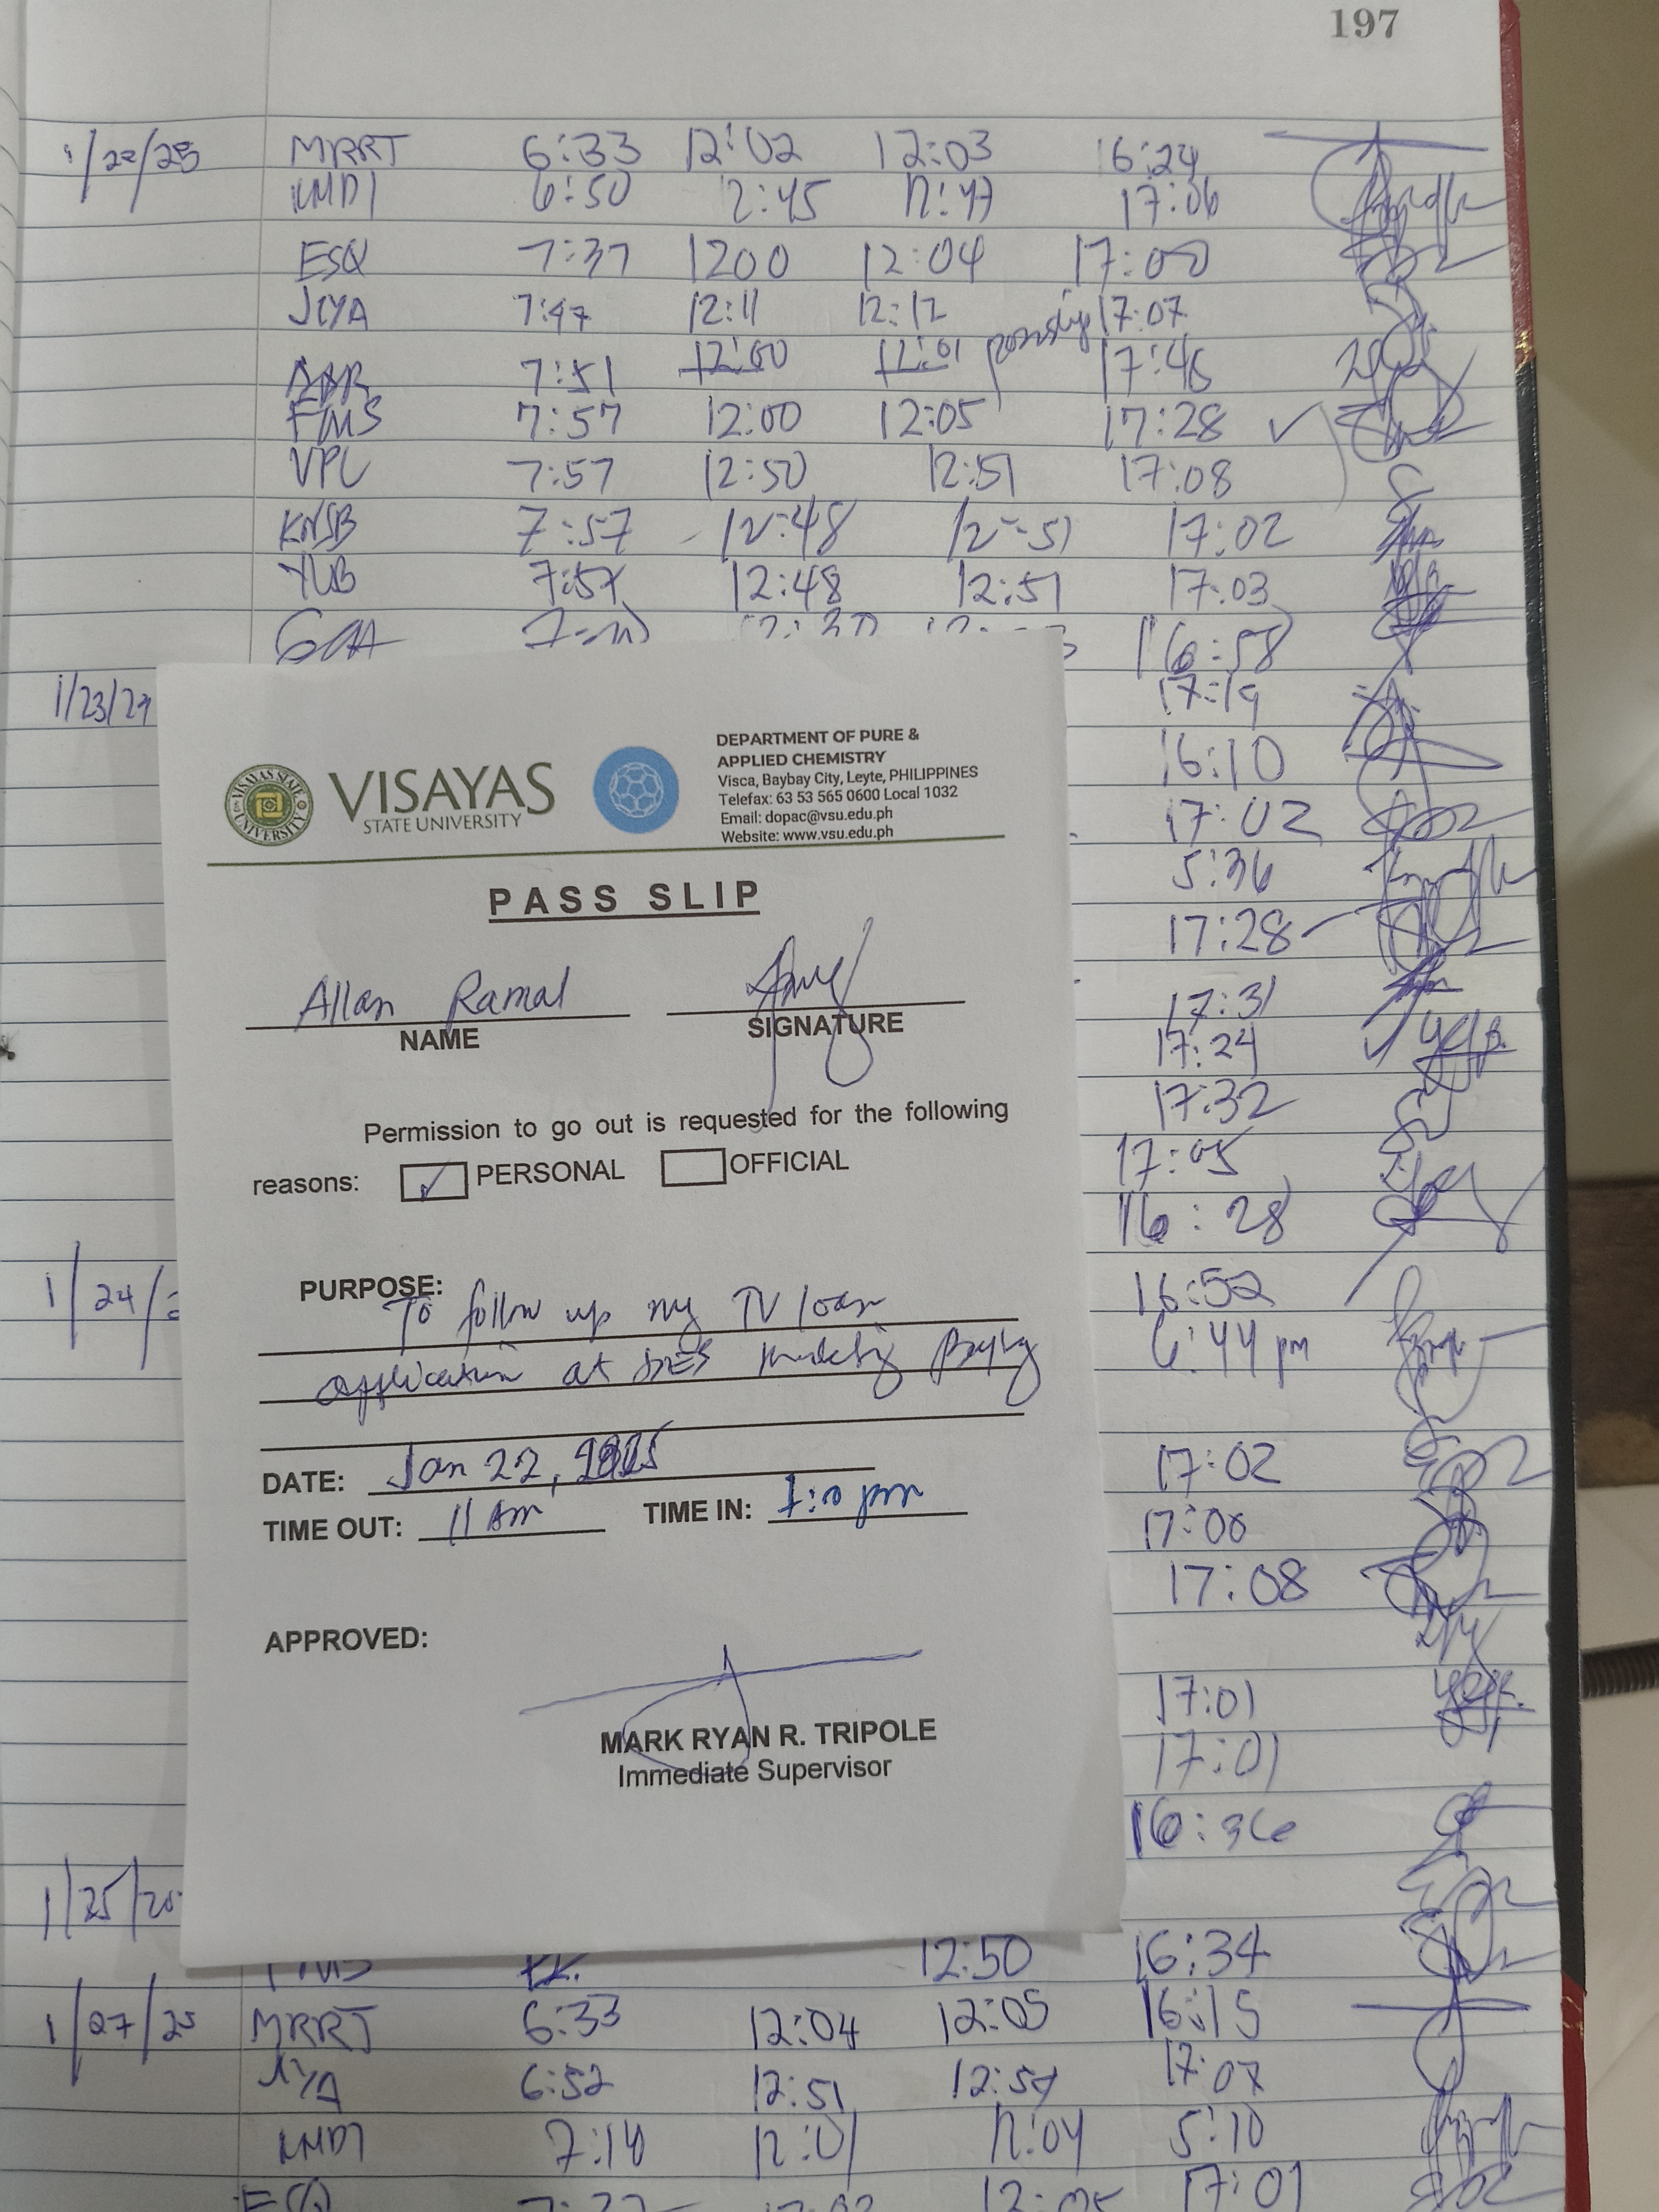 197
1/22/25 MRRT 6:33 12:02 12:03 16:24
KMDT 6:50 12:45 12:47 17:06
ESQ 7:37 1200 12:04 17:00
JCYA 7:47 12:11 12:12 17:07
7:51 12:00 12:01 pass slip 17:46
FMS 7:57 12:00 12:05 17:28 ✓
VPL 7:57 12:50 12:51 17:08
KNSB 7:57 12:48 12:51 17:02
YUB 7:57 12:48 12:51 17:03
16:58
1/23/24 17:19
16:10
17:02
5:36
17:28
17:31
17:24
17:32
17:05
16:28
1/24/ 16:52
6:44 pm
17:02
17:00
17:08
17:01
17:01
16:36
1/25/20
VISAYAS STATE UNIVERSITY
VISAYAS
STATE UNIVERSITY
DEPARTMENT OF PURE &
APPLIED CHEMISTRY
Visca, Baybay City, Leyte, PHILIPPINES
Telefax: 63 53 565 0600 Local 1032
Email: dopac@vsu.edu.ph
Website: www.vsu.edu.ph
PASS SLIP
Allan Ramal
NAME SIGNATURE
Permission to go out is requested for the following
reasons: ✓ PERSONAL OFFICIAL
PURPOSE:
To follow up my TV loan
application at DES Marketing Baybay
DATE: Jan 22, 2025
TIME OUT: 11 Am TIME IN: 1:10 pm
APPROVED:
MARK RYAN R. TRIPOLE
Immediate Supervisor
FMS 12:50 16:34
1/27/25 MRRT 6:33 12:04 12:05 16:15
6:52 12:51 12:54 17:07
KMDT 7:14 12:01 12:04 5:10
ESQ 17:01